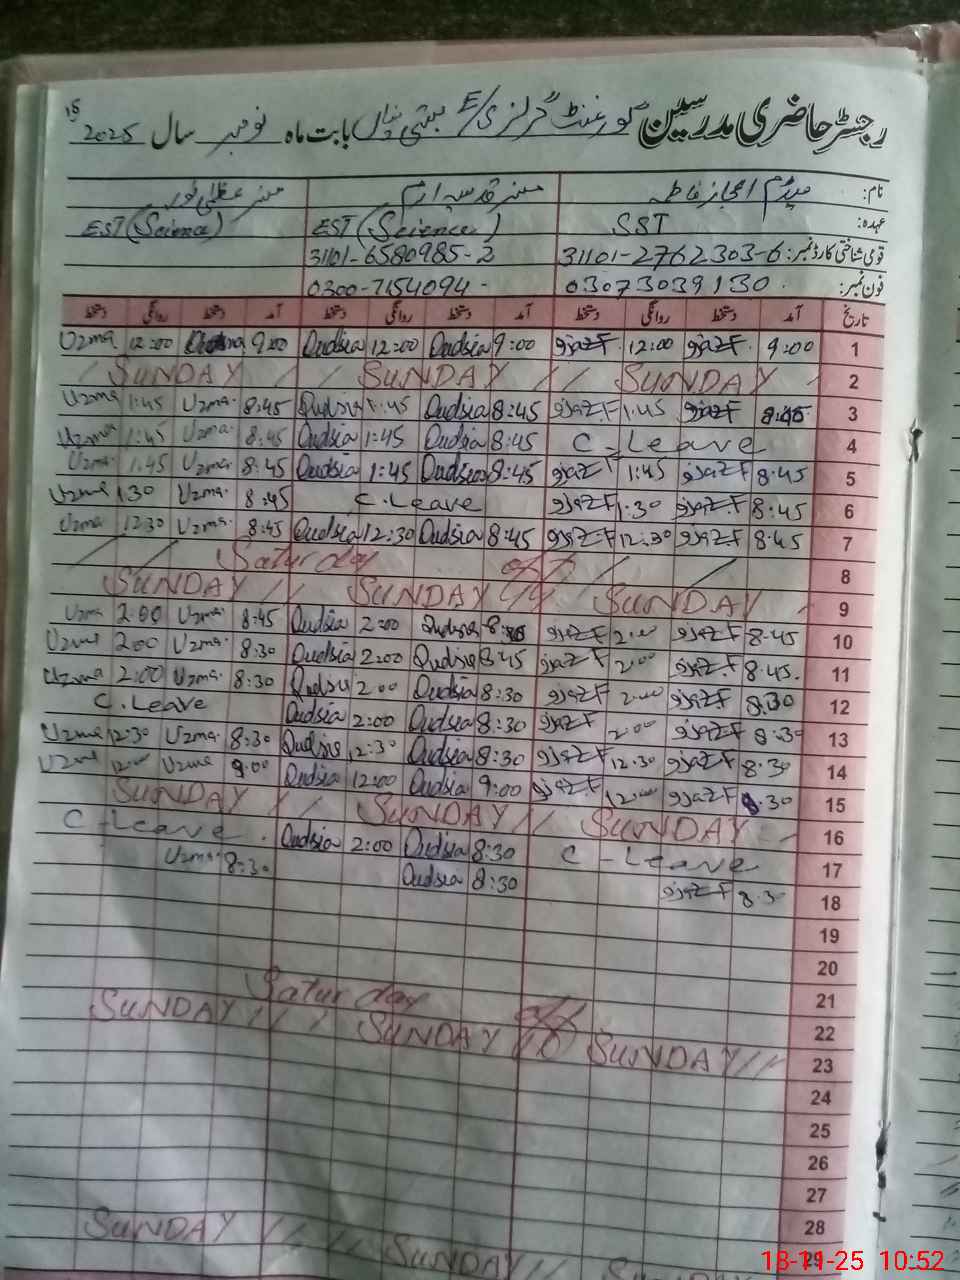 رجسٹر حاضری مدرسین گورنمنٹ گرلز E/ بستی بابت ماہ نومبر سال 2025
نام: میڈم اعجاز فاطمہ مسز قدسیہ ارم مسز عظمیٰ نور
عہدہ: SST EST (Science) EST (Science)
قومی شناختی کارڈ نمبر: 31101-2762303-6 31101-6580985-2
فون نمبر: 03073039130 0300-7154094
تاریخ آمد دستخط روانگی دستخط آمد دستخط روانگی دستخط آمد دستخط روانگی دستخط
Uzma 12:00 9:00 Qudsia 12:00 Qudsia 9:00 IjazF 12:00 IjazF 9:00 1
SUNDAY SUNDAY SUNDAY 2
Uzma 1:45 Uzma 8:45 Qudsia 1:45 Qudsia 8:45 IjazF 1:45 IjazF 8:45 3
Uzma 1:45 Uzma 8:45 Qudsia 1:45 Qudsia 8:45 C-Leave 4
Uzma 1:45 Uzma 8:45 Qudsia 1:45 Qudsia 8:45 IjazF 1:45 IjazF 8:45 5
Uzma 1:30 Uzma 8:45 C.Leave IjazF 1:30 IjazF 8:45 6
Uzma 12:30 Uzma 8:45 Qudsia 12:30 Qudsia 8:45 IjazF 12:30 IjazF 8:45 7
Saturday off 8
SUNDAY SUNDAY SUNDAY 9
Uzma 2:00 Uzma 8:45 Qudsia 2:00 Qudsia IjazF 2:00 IjazF 8:45 10
Uzma 2:00 Uzma 8:30 Qudsia 2:00 Qudsia 8:45 IjazF 2:00 IjazF 8:45 11
Uzma 2:00 Uzma 8:30 Qudsia 2:00 Qudsia 8:30 IjazF 2:00 IjazF 8:30 12
C.Leave Qudsia 2:00 Qudsia 8:30 IjazF 2:00 IjazF 8:30 13
Uzma 12:30 Uzma 8:30 Qudsia 12:30 Qudsia 8:30 IjazF 12:30 IjazF 8:30 14
Uzma 12:00 Uzma 9:00 Qudsia 12:00 Qudsia 9:00 IjazF 12:00 IjazF 8:30 15
SUNDAY SUNDAY SUNDAY 16
C-Leave Qudsia 2:00 Qudsia 8:30 C-Leave 17
Uzma 8:30 Qudsia 8:30 IjazF 8:30 18
19
20
21
Saturday off 22
SUNDAY SUNDAY SUNDAY 23
24
25
26
27
28
29
SUNDAY SUNDAY SUNDAY
18-11-25 10:52